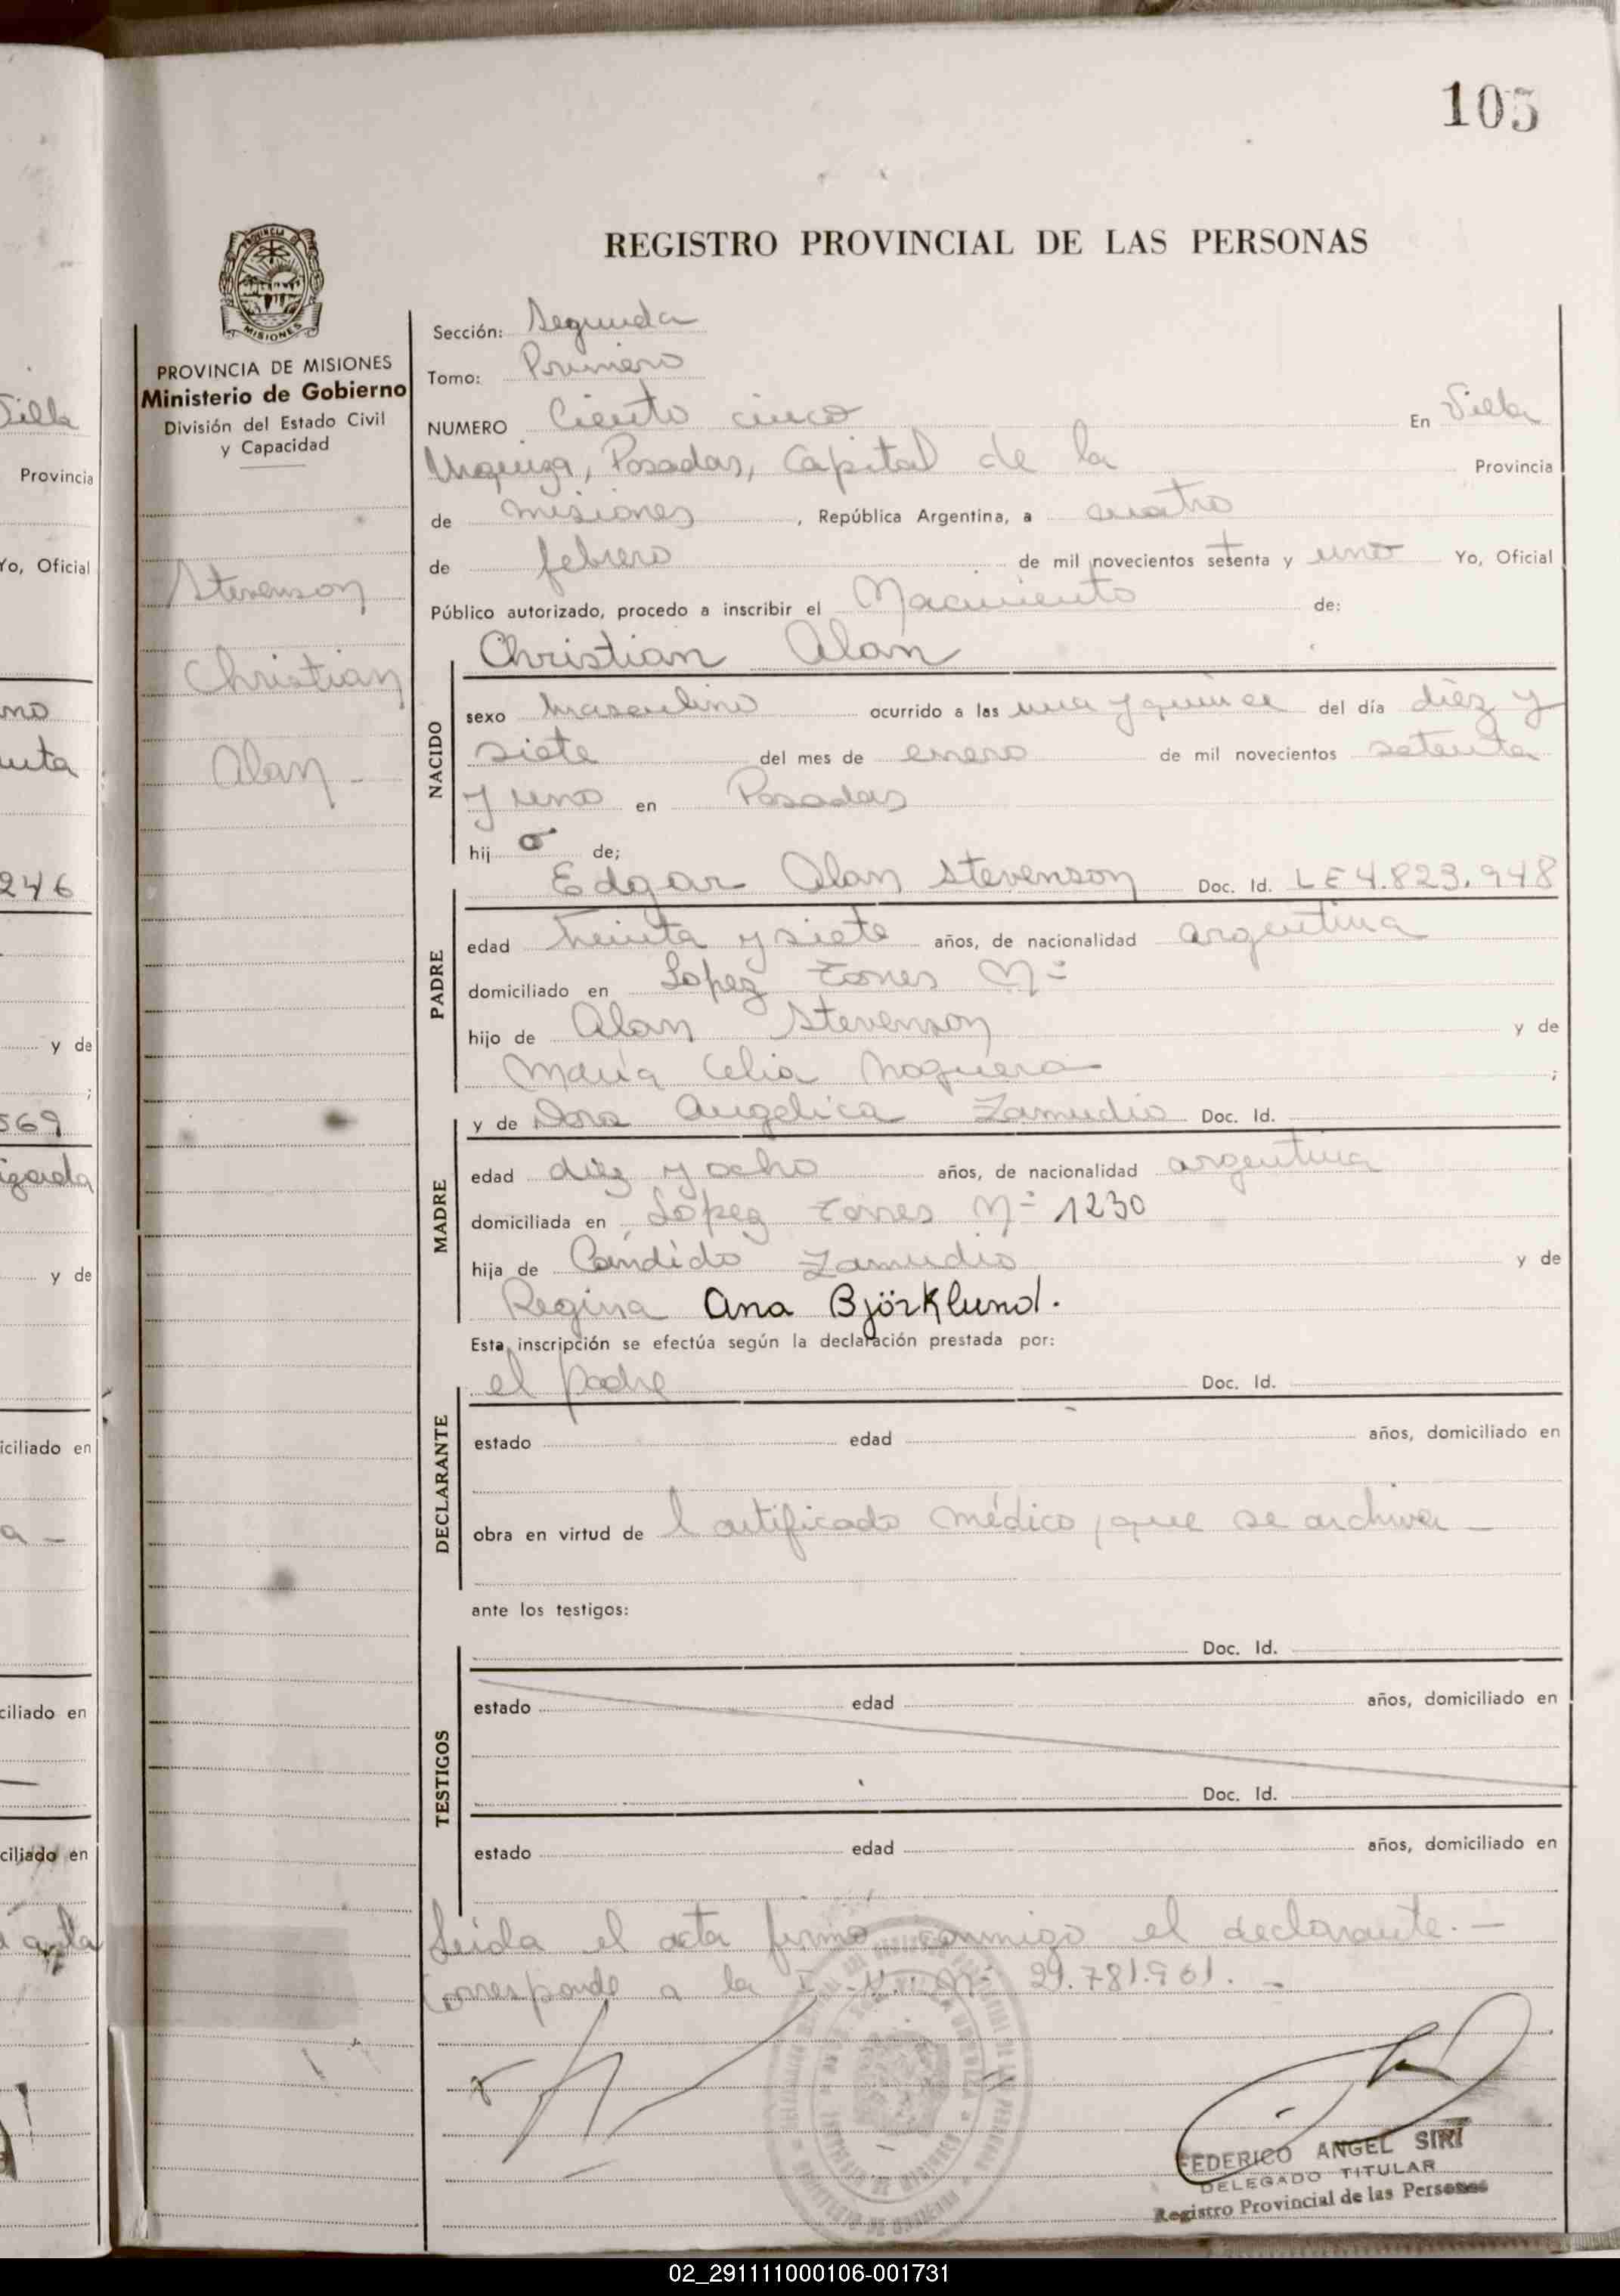 105
REGISTRO PROVINCIAL DE LAS PERSONAS
PROVINCIA DE MISIONES
Ministerio de Gobierno
División del Estado Civil
y Capacidad
Stevenson
Christian
Alan -
Sección: Segunda
Tomo: Primero
NUMERO Ciento cinco En Villa
Urquiza, Posadas, Capital de la Provincia
de misiones, República Argentina, a cuatro
de febrero de mil novecientos setenta y uno Yo, Oficial
Público autorizado, procedo a inscribir el Nacimiento de:
Christian Alan
NACIDO
sexo masculino ocurrido a las una y quince del día diez y
siete del mes de enero de mil novecientos setenta
y uno en Posadas
hijo de;
Edgar Alan Stevenson Doc. Id. LE 4.823.948
PADRE
edad treinta y siete años, de nacionalidad argentina
domiciliado en Lopez Torres Nº
hijo de Alan Stevenson y de
María Celia Noguera ;
y de Dora Angelica Zamudio Doc. Id.
MADRE
edad diez y ocho años, de nacionalidad argentina
domiciliada en López Torres Nº 1230
hija de Cándido Zamudio y de
Regina Ana Björklund.
Esta inscripción se efectúa según la declaración prestada por:
el padre Doc. Id.
DECLARANTE
estado edad años, domiciliado en
obra en virtud de l certificado médico, que se archiva -
ante los testigos:
Doc. Id.
TESTIGOS
estado edad años, domiciliado en
Doc. Id.
estado edad años, domiciliado en
Leida el acta firmó conmigo el declarante. -
Corresponde a la Nº 21.781.961. -
FEDERICO ANGEL SIRI
DELEGADO TITULAR
Registro Provincial de las Personas
02_291111000106-001731